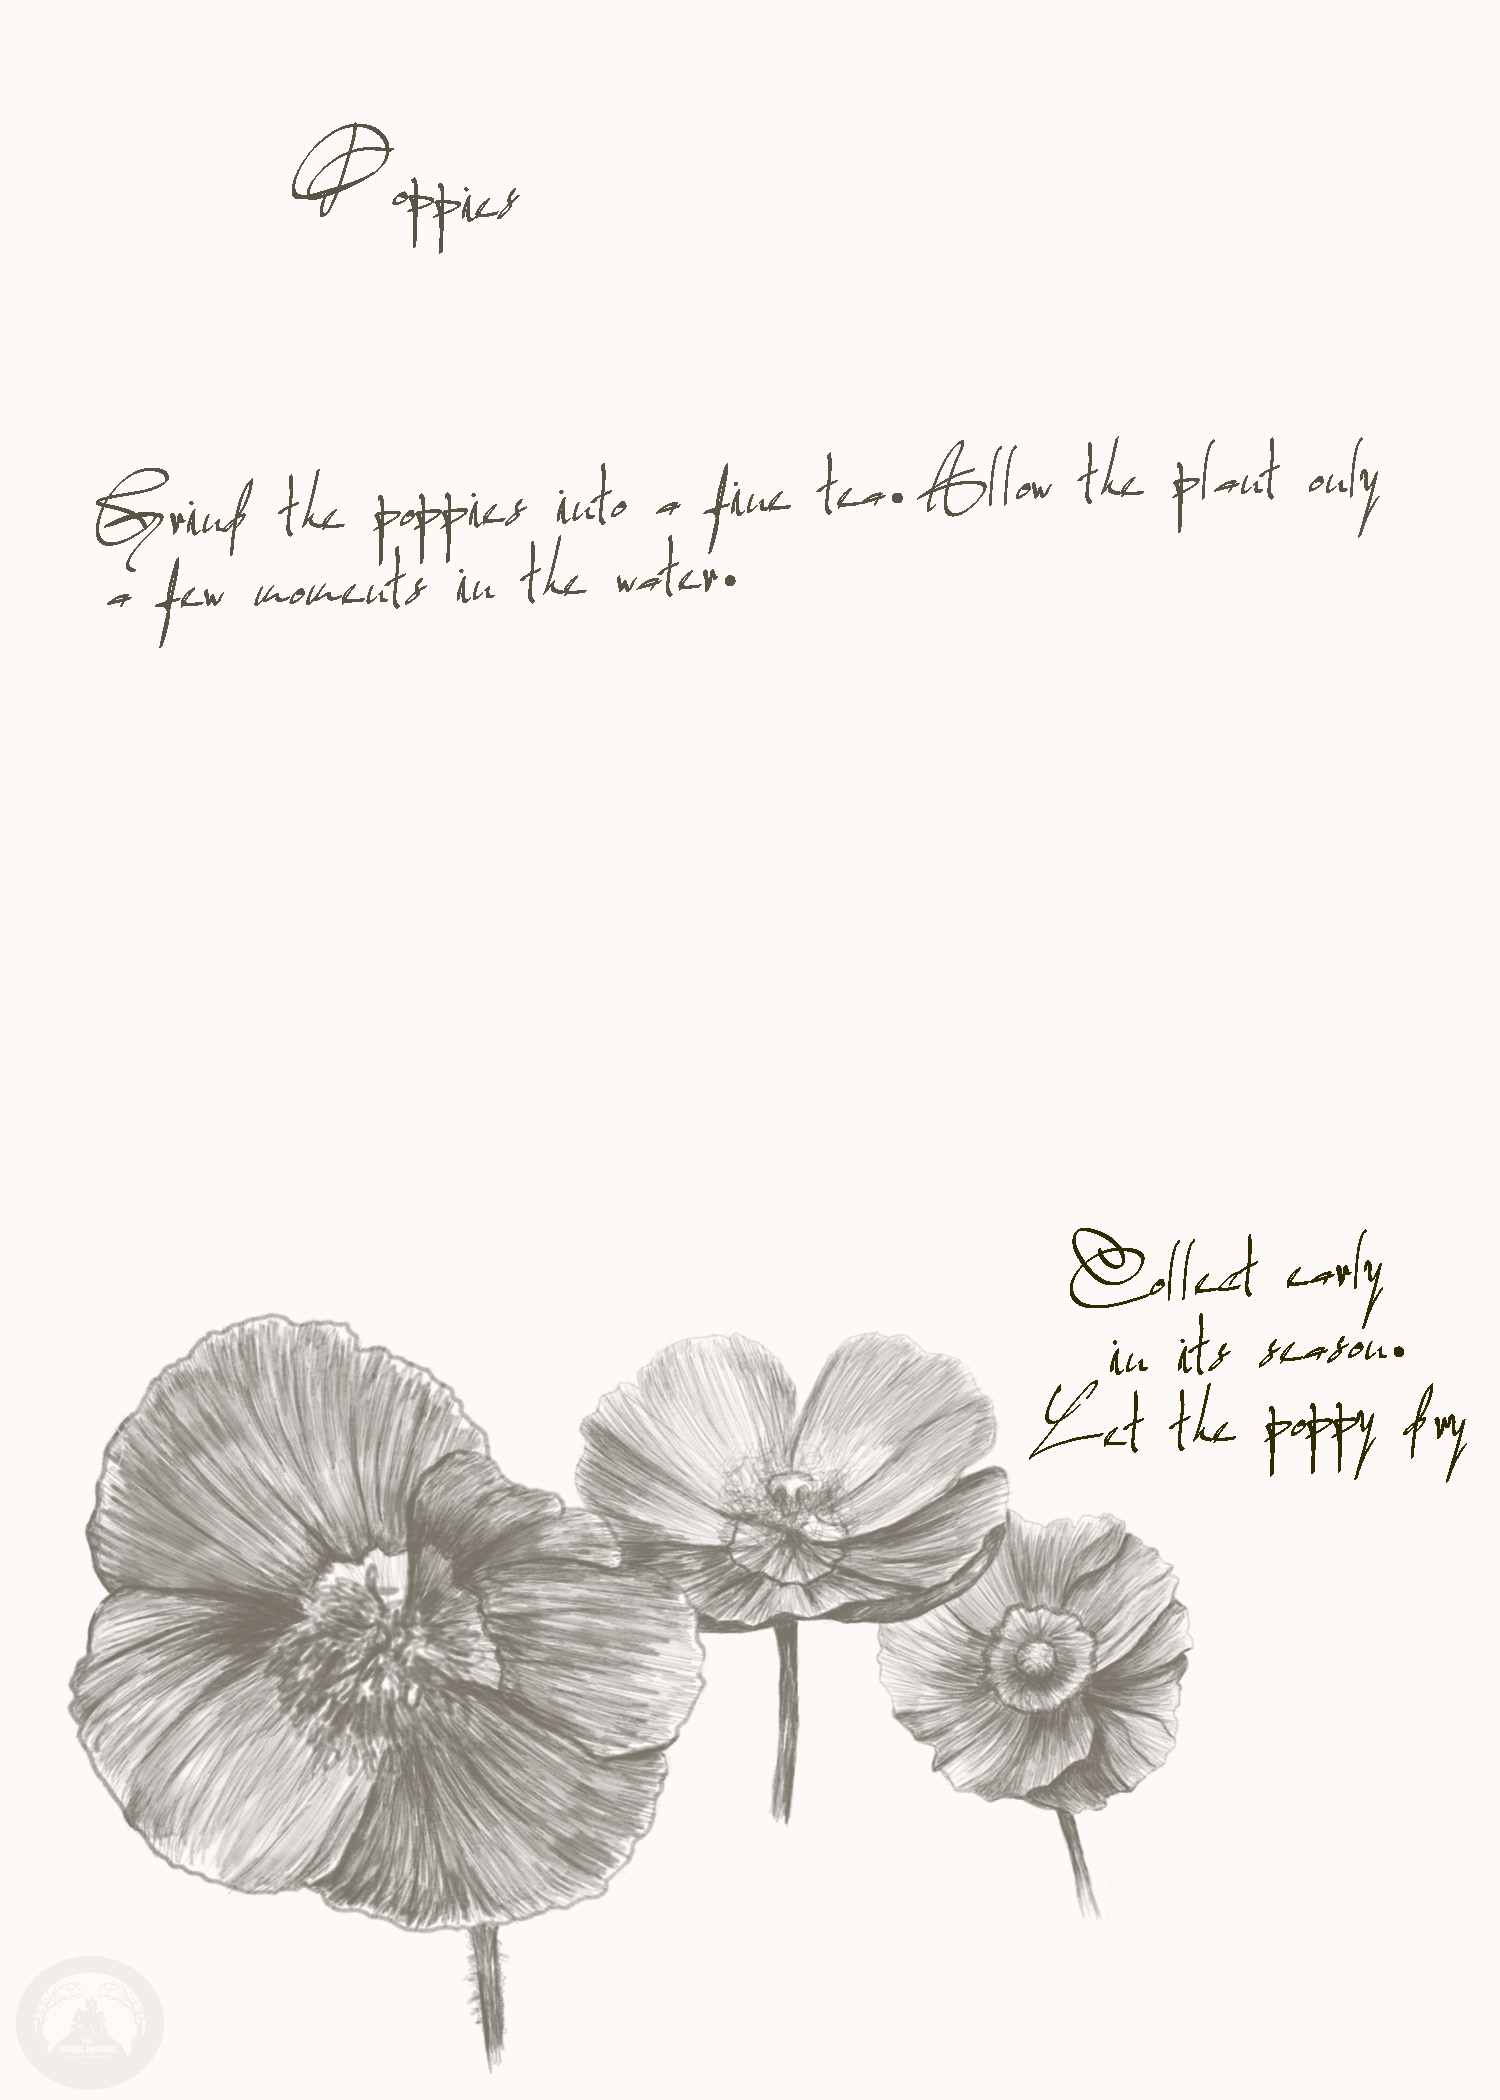 Poppies
Grind the poppies into a fine tea. Allow the plant only
a few moments in the water.
Collect early
in its season.
Let the poppy dry